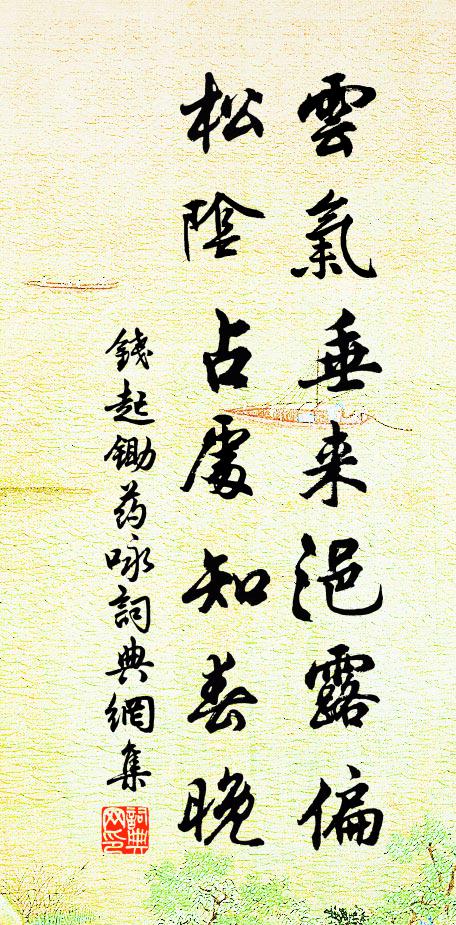 雲氣垂来浥露偏
松陰占處知春晚
錢起鋤药咏詞典網集
詞典网印